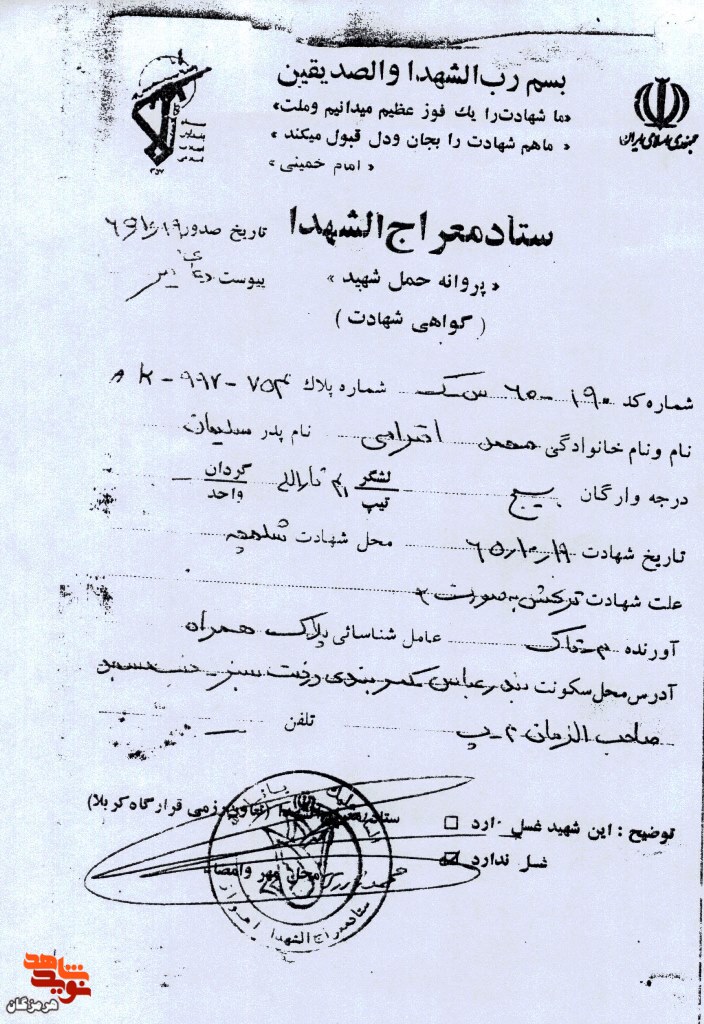 بسم رب الشهدا والصدیقین
«ما شهادت را یك فوز عظیم میدانیم وملت»
« ماهم شهادت را بجان ودل قبول میکند »
« امام خمینی »
جمهوری اسلامی ایران
ستاد معراج الشهدا
تاریخ صدور
« پروانه حمل شهید »
پیوست
( گواهی شهادت )
شماره کد ۱۹۰ - ۶۵ س ک شماره پلاك ۷۵۳ - ۹۹۷ - K
نام ونام خانوادگی محمد نام پدر سلیمان
درجه وارگان بسیج لشگر تیپ ۴۱ ثارالله گردان واحد -
تاریخ شهادت ۶۵/۱۰/۱۹ محل شهادت شلمچه
علت شهادت ترکش بصورت
آورنده عامل شناسائی پلاک همراه
آدرس محل سکونت بندرعباس کمربندی درخت سبز
صاحب الزمان تلفن —
توضیح : این شهید غسل دارد ☐
غسل ندارد ☑
(تعاون رزمی قرارگاه کربلا)
محل مهر وامضاء
ستاد معراج الشهدا اهواز
شاهد
نوید
هرمزگان